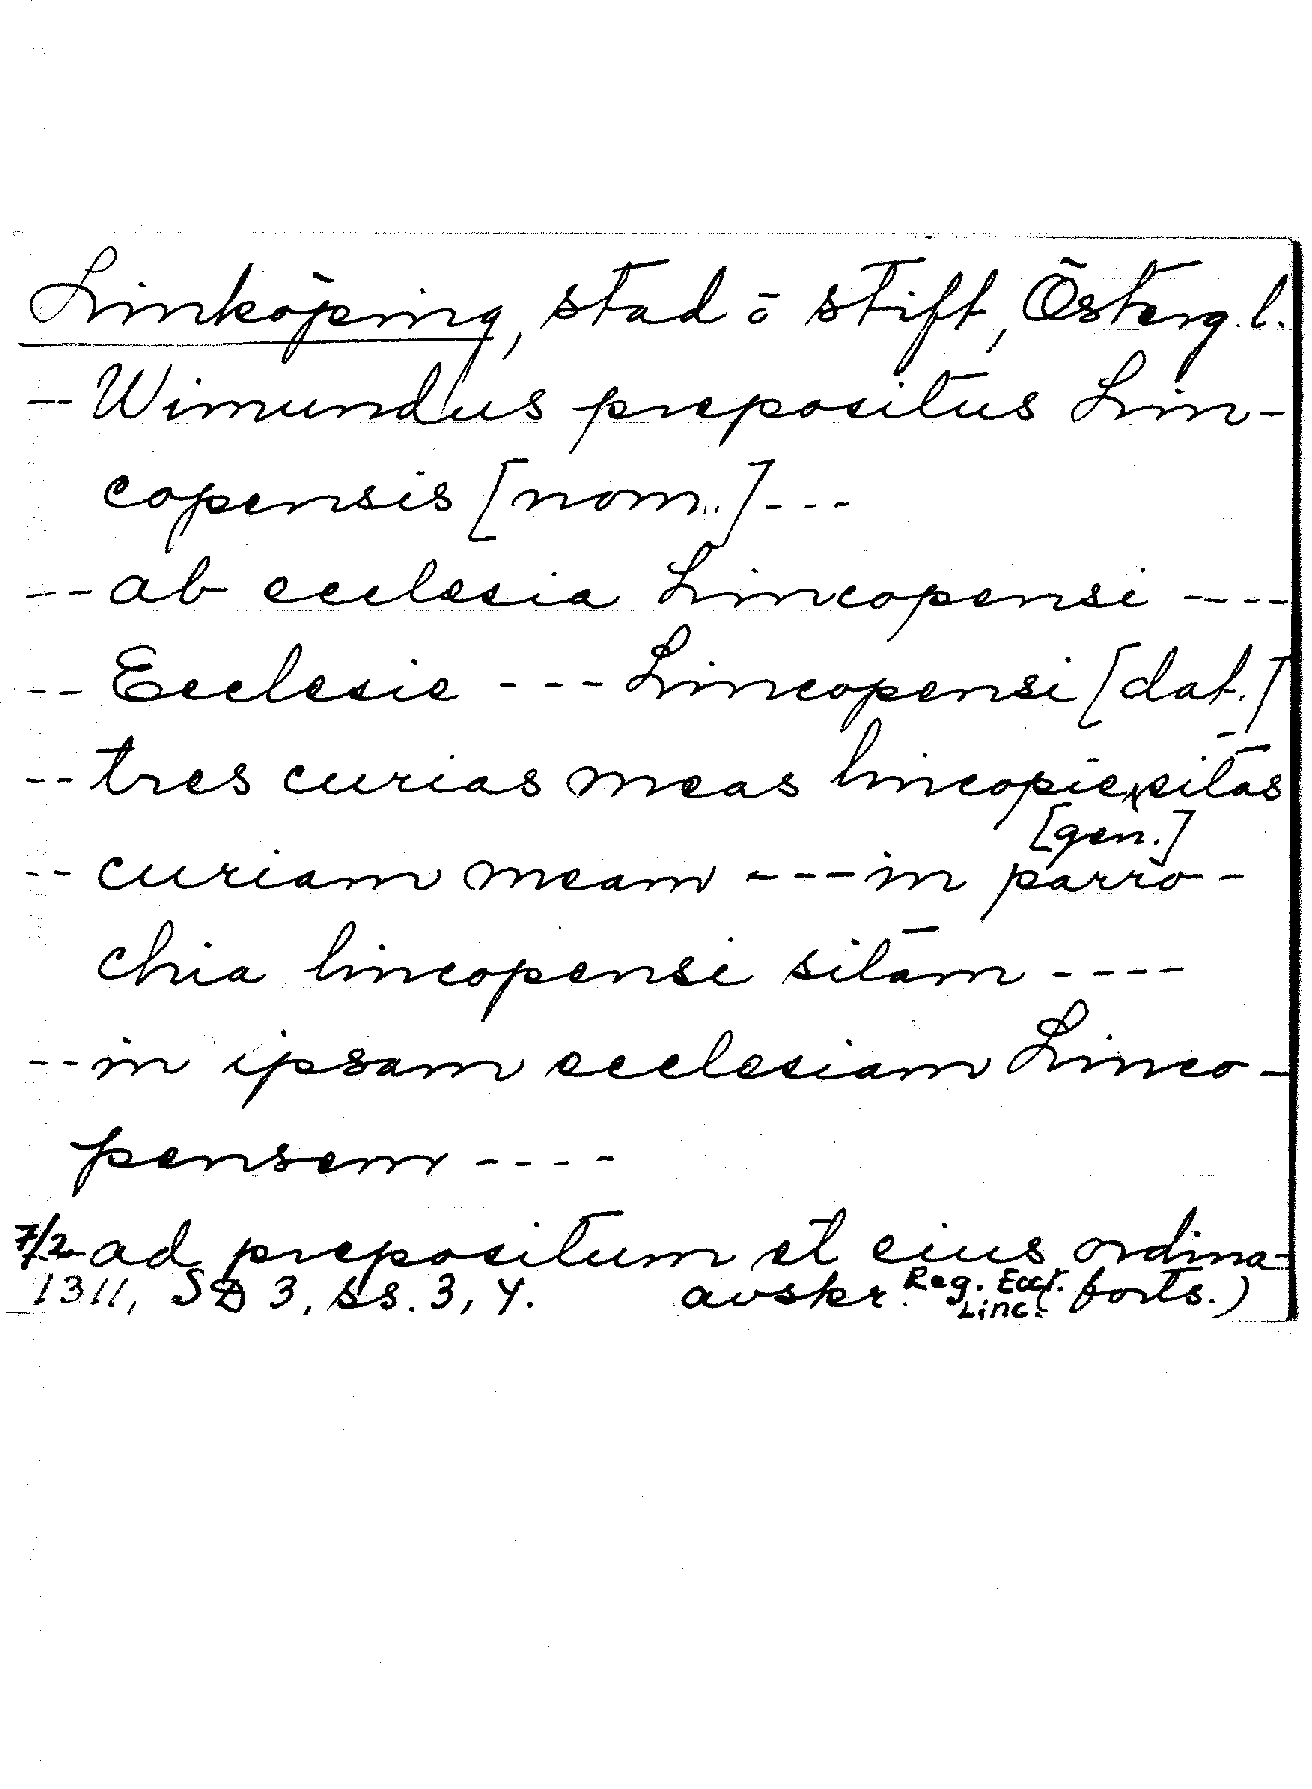 Linköping, stad o stift, Österg.l.
-- Wimundus prepositus Lin-
copensis [nom.] ---
-- ab ecclesia Lincopensi ----
-- Ecclesie --- Lincopensi [dat.]
-- tres curias meas lincopie sitas
[gen.]
-- curiam meam --- in parro-
chia lincopensi sitam ----
-- in ipsam ecclesiam Linco-
pensem ----
7/2 - ad prepositum et eius ordina-
1311, SD 3, ss. 3, 4. avskr. Reg. Eccl. Linc. (forts.)